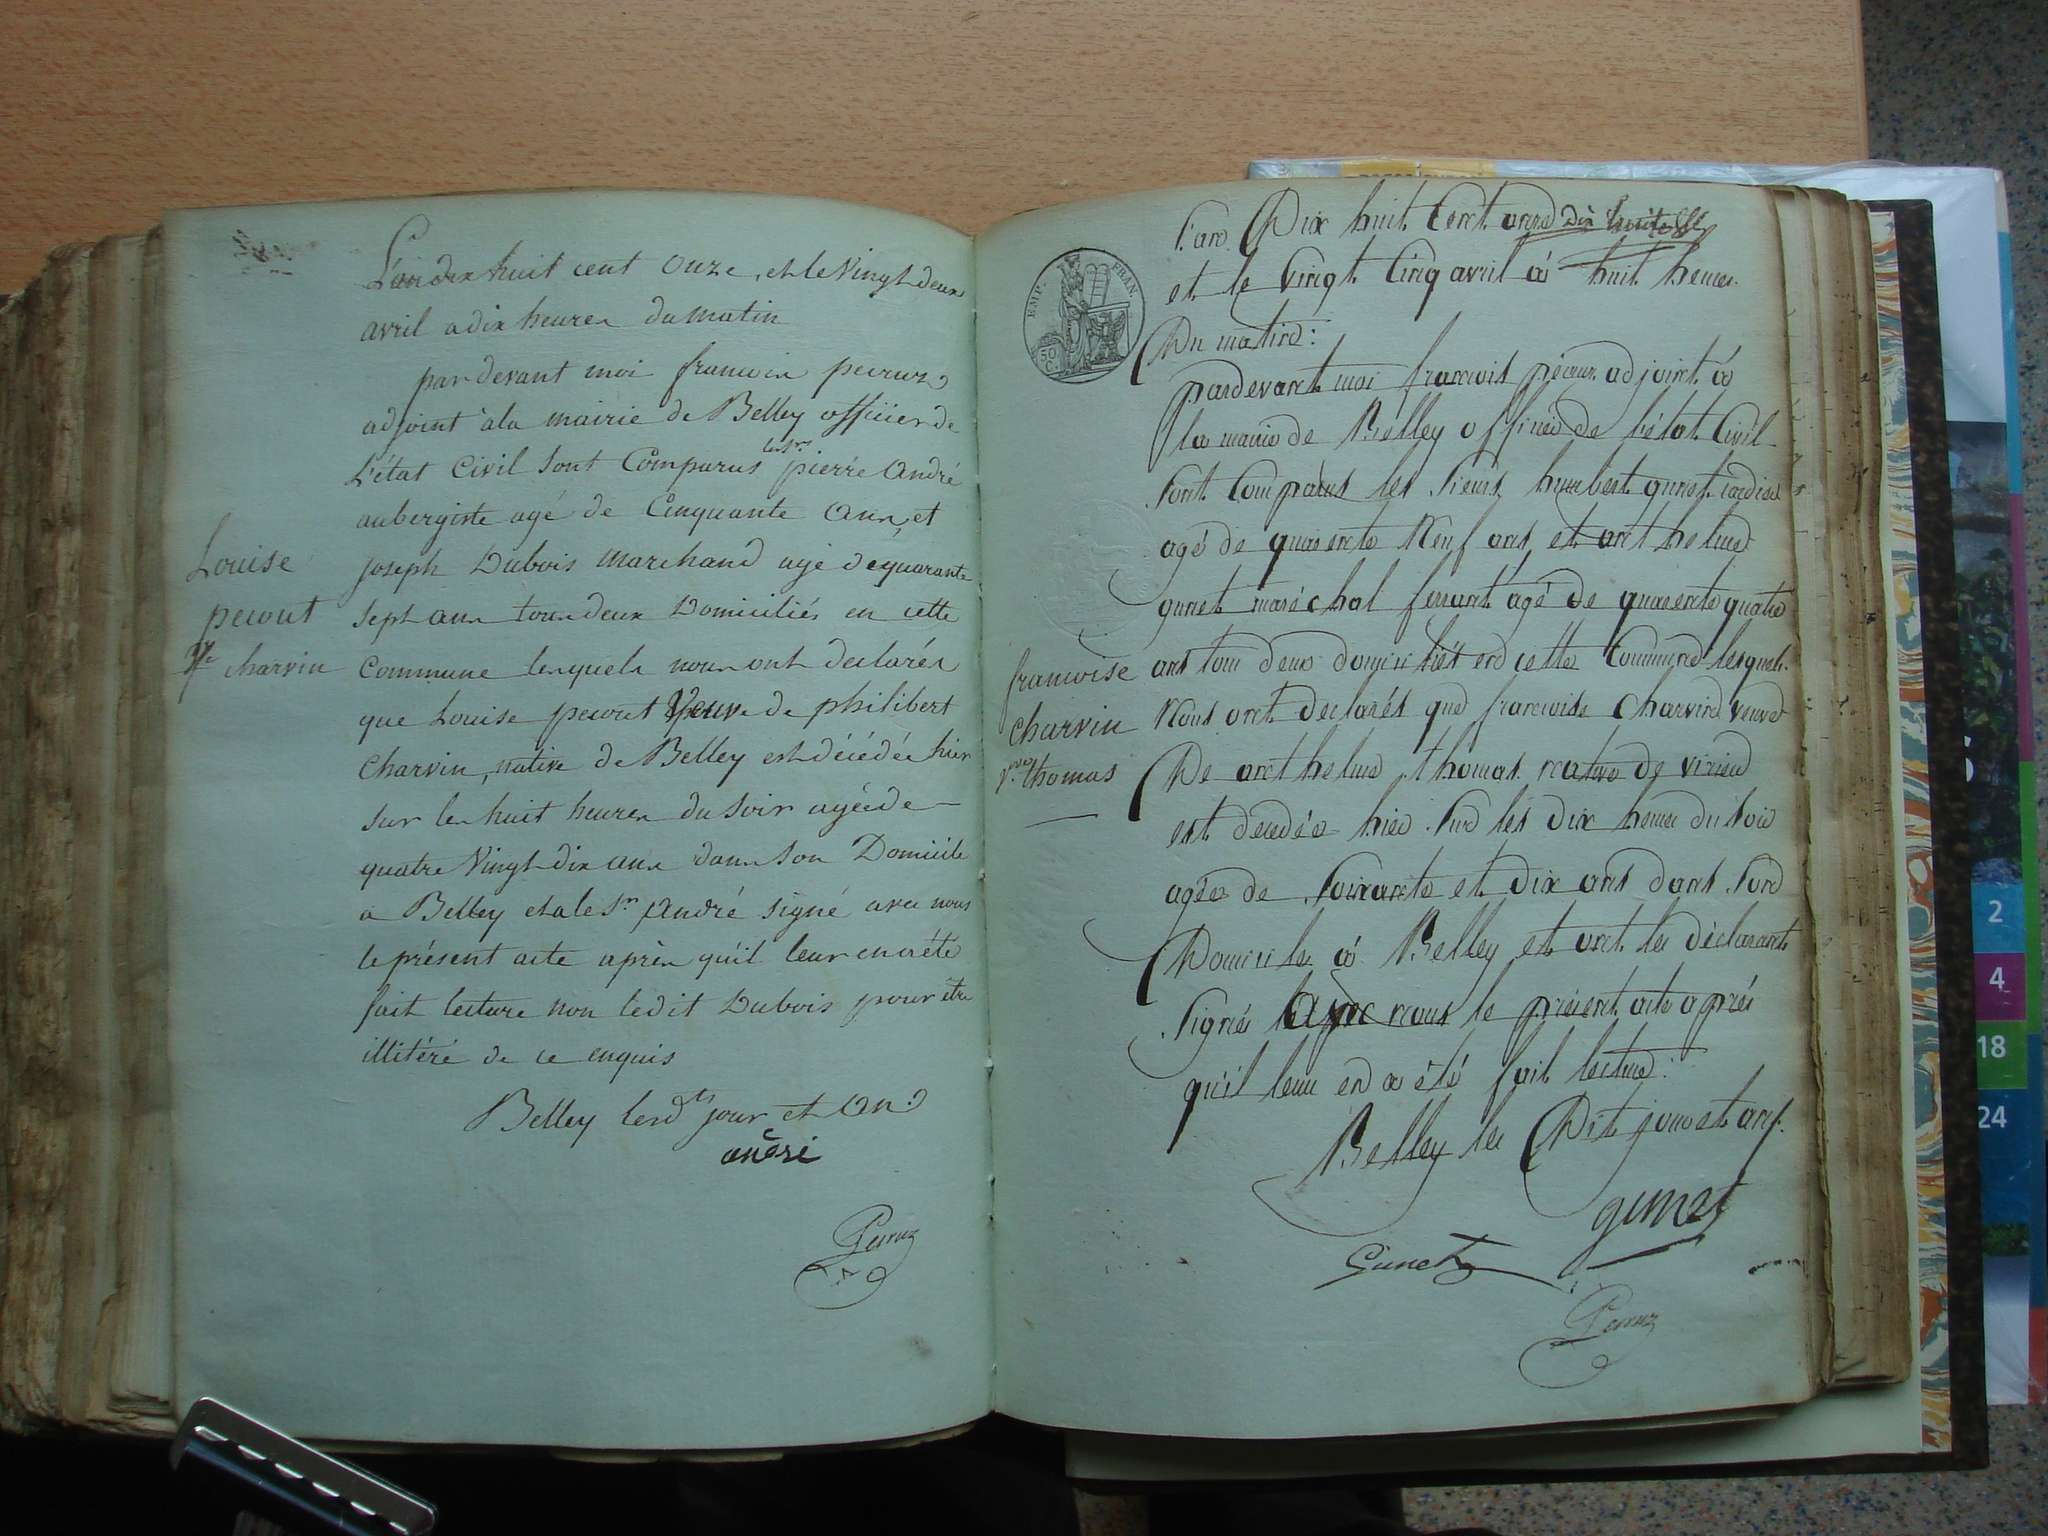 L'an dix huit cent onze, et le vingt deux
avril a dix heures du matin
par devant moi francois pecruz
adjoint à la mairie de Belley officier de
L'état Civil sont Comparus les Srs pierre André
aubergiste agé de Cinquante Ans et
joseph Dubois marchand agé de quarante
sept ans tous deux Domiciliés en cette
Commune lesquels nous ont declarés
que Louise pecout Veuve de philibert
Charvin, native de Belley est décédée hier
sur les huit heures du soir agée de
quatre Vingt dix ans dans son Domicile
a Belley et a le Sr André signé avec nous
le présent acte après qu'il leur en a été
fait lecture non ledit Dubois pour être
illitéré de ce enquis
Belley lesdts jour et An.
andré
Louise
pecout
Ve charvin
L'an Dix huit Cent onze
et le vingt Cinq avril à huit heures
Du matin:
pardevant moi francois adjoint à
la mairie de Belley officier de l'état Civil
sont Comparus les sieurs humbert gunet
agé de quarente Neuf ans et anthelme
gunet maréchal ferrant agé de quarente quatre
ans tous deux domiciliés en cette Commune lesquels
Nous ont declarés que francoise Charvin veuve
De anthelme thomas native de virieu
est decedée hier sur les dix heures du soir
agée de soixante et dix ans dans son
Domicile à Belley et ont les déclarants
signés avec nous le présent acte après
qu'il leur en a été fait lecture:
Belley les Dit jour et an.
gunet
Gunet
francoise
charvin
ve thomas
EMP. FRAN.
50
C.
2
4
18
24